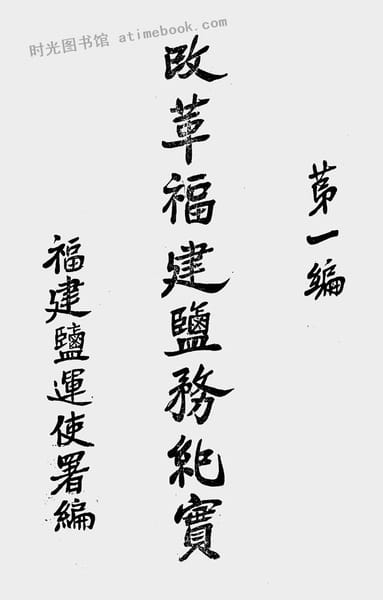 时光图书馆 atimebook.com
第一編
改革福建鹽務紀實
福建鹽運使署編